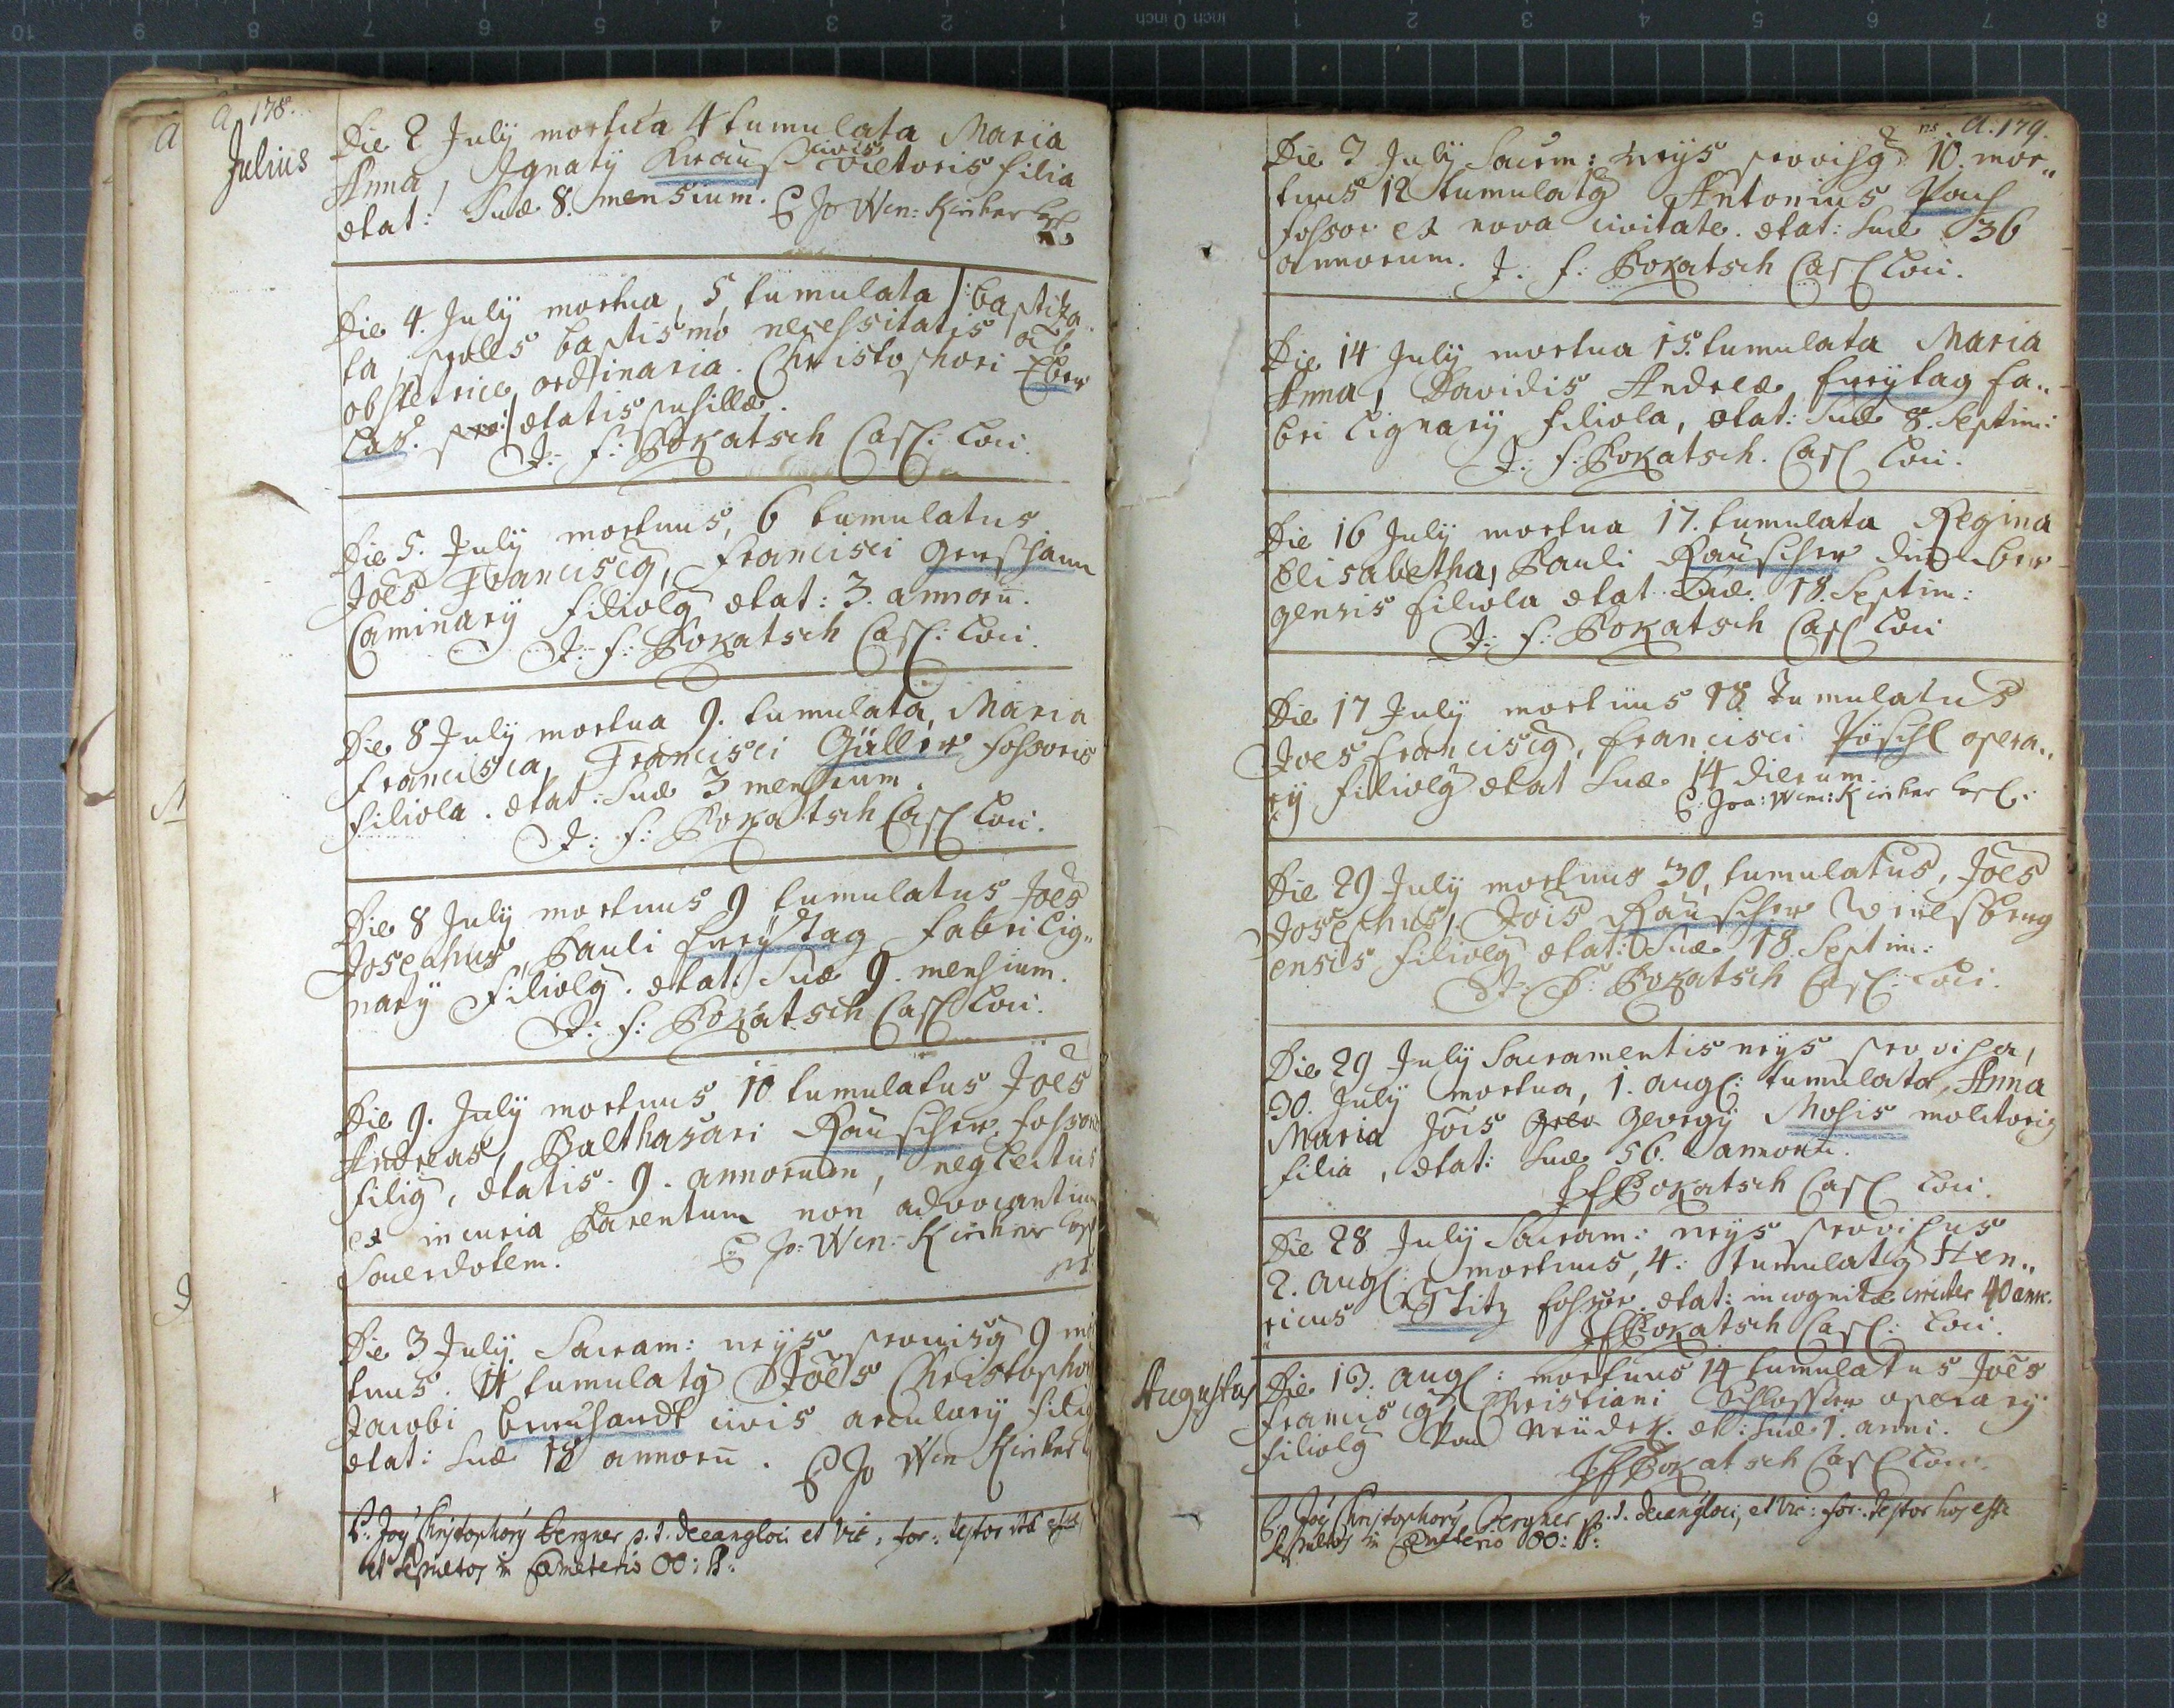 A. 178.
Julius
Die 2 July mortua 4 tumulata Maria
Anna, Ignatÿ Krauß civis Vietoris filia
ætat: suæ 8. mensium. C Jo Wen: Kirker Capl
Die 4. July mortua, 5 tumulata /:baptiza-
ta, proles baptismo necessitatis ab
obstetrice ordinaria. Christophori Eber
Cas. ætatis pusillæ.
J: f: Pokatsch Capl: Loci.
Die 5. July mortuus, 6 tumulatus
Joes Franciscq, Francisci Gerschann
Caminarÿ filiolq ætat: 3. annorū.
J: f: Pokatsch Capl: Loci.
Die 8 July mortua 9. tumulata, Maria
Francisca, Francisci Güller fossoris
filiola. ætat: suæ 3 mensium.
J: f: Pokatsch Capl Loci.
Die 8 July mortuus 9 tumulatus Joes
Josephus, Pauli Freÿtag fabri lig-
narÿ filiolq. ætat: suæ 9. mensium.
J: f: Pokatsch Capl Loci.
Die 9. July mortuus 10 tumulatus Joes
Andreas, Balthasari Rauscher fossoris
filiq, ætatis 9. annorum, neglectus
ex incuria Parentum non advocantium
Sacerdotem. C Jo: Wen: Kirker Capl
Die 3 July Sacram: nrÿs provisq 9 mor
tuus. 11 tumulatq Joes Christophori
Jacobi Burchardt civis arcularÿ filiq
ætat: suæ 12 annorū. C Jo Wen Kirker
C: Joÿ Christophorÿ Bergner p. t. decanq loci et Vic: for: testor hos esse
sepultos in Cæmeterio OO: S:
A. 179.
Die 7 July Sacrm: nrÿs provisq 10. mor-
tuus 12 tumulatq Antonius Pach
fossor ex nova civitate. ætat: suæ 36
annorum. J: f: Pokatsch Capl Loci.
Die 14 July mortua 15. tumulata Maria
Anna, Davidis Andreæ Freÿtag fa-
bri lignarÿ filiola, ætat: suæ 8. Septim:
J: f: Pokatsch. Capl Loci.
Die 16 July mortua 17. tumulata Regina
Elisabetha, Pauli Rauscher
gensis filiola ætat suæ. 18. Septim:
J: f: Pokatsch Capl Loci
Die 17 July mortuus 18 Tumulatus
Joes Franciscq, Francisci Pöschl opera-
rÿ filiolq ætat suæ 14 dierum.
C: Joa: Wen: Kirker Capl:
Die 29 July mortuus 30, tumulatus, Joes
Josephus, Jois Rauscher Wirlsberg
ensis filiolq ætat: suæ 18. Septim:
J: f: Pokatsch Capl: Loci.
Die 29 July Sacramentis nrÿs provisa,
30. July mortua, 1. augl: tumulata, Anna
Maria Jois Georgÿ Mosis molitoris
filia, ætat: suæ 56. annorū.
JfPokatsch Capl Loci.
Die 28 July Sacram: nrÿs provisus
2. augl: mortuus, 4: tumulatq Hen-
ricus Tlitz fossor. ætat: incognitæ circiter 40 ann.
JfPokatsch Capl: Loci.
Augustus
Die 13. augl: mortuus 14 tumulatus Joes
Franciscq, Christiani Schlosser operarÿ
filiolq von Neüdek. æt: suæ 1. anni.
JfPokatsch Capl Loci.
C: Joÿ Christophorÿ Bergner p. t. decanq loci, et Vic: for: testor hos esse
sepultos in Cæmeterio OO: S: